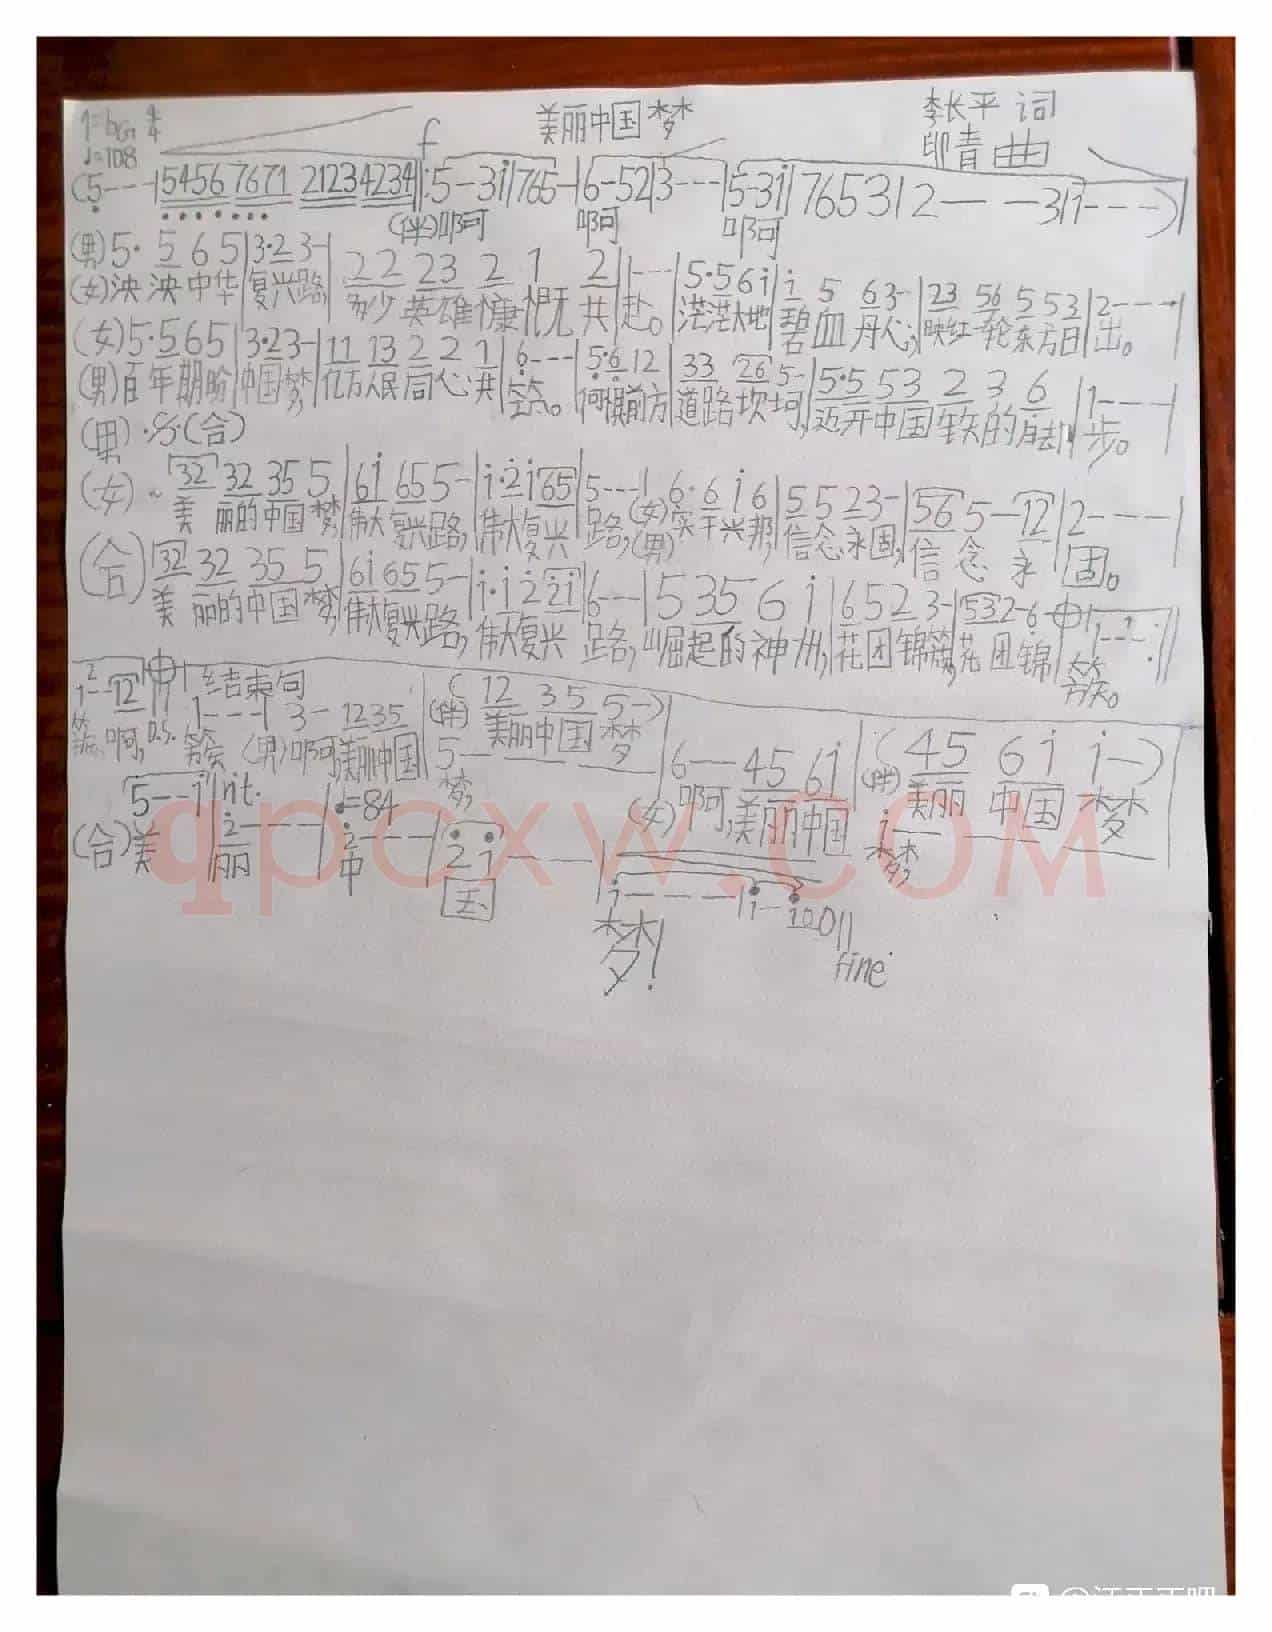 1=bG 4/4 美丽中国梦 李长平 词
♩=108 f 印青 曲
(5---|5456 7671 2123 4234‖:5-3i|765-|6-52|3---|5-3i|7653|2---3|1---)|
(伴)啊 啊 啊
(男)5· 5 6 5|3·2 3-|22 23 2 1 2|1---|5·5 6 i|i 5 6 3-|23 56 5 53|2---|
(女)泱 泱 中华 复兴路, 多少 英雄慷慨 共 赴。 茫茫大地 碧血 丹心, 映红一轮东方日 出。
(女)5·5 6 5|3·2 3-|11 13 2 2 1|6---|5·6 12|33 26 5-|5·5 53 2 3 6|1---|
(男)百年期盼 中国梦, 亿万人民同心共 筑。 何惧前方 道路坎坷, 迈开中国 的 步。
(男)·S·(合)
(女) 32 32 35 5|6i 65 5-|i·2 i 65|5---|6·6 i 6|5 5 2 3-|56 5-12|2---|
美 丽的中国 梦, 伟大复兴路, 伟大复兴 路,(女)(男)实干兴邦, 信念永固, 信 念 永 固。
(合)32 32 35 5|6i 65 5-|i·i 2 2i|6---|5 35 6 i|6 5 2 3-|532-6|1--1:‖
美 丽的中国 梦, 伟大复兴路, 伟大复兴 路, 崛起的神州, 花团锦簇, 花团锦 簇。
2 结束句
1--12 D.S. 1---|3-1235|(伴)(12 35 5-)|
簇, 啊, 簇 (男)啊 美丽中国 美丽中国 梦
5--- 6--45 6i|(伴)(45 6i i-)|
梦, (女)啊, 美丽中国 美丽 中国 梦
i---
梦,
5--i rit. ♩=84
(合)美 2---|2---|2 i---|i---|i--i00‖
丽 中 国 梦! fine
qpcxw.com